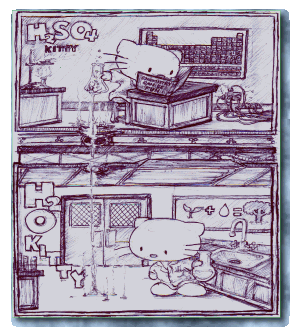 H2SO4
KITTY
H2O
KITTY
+
=